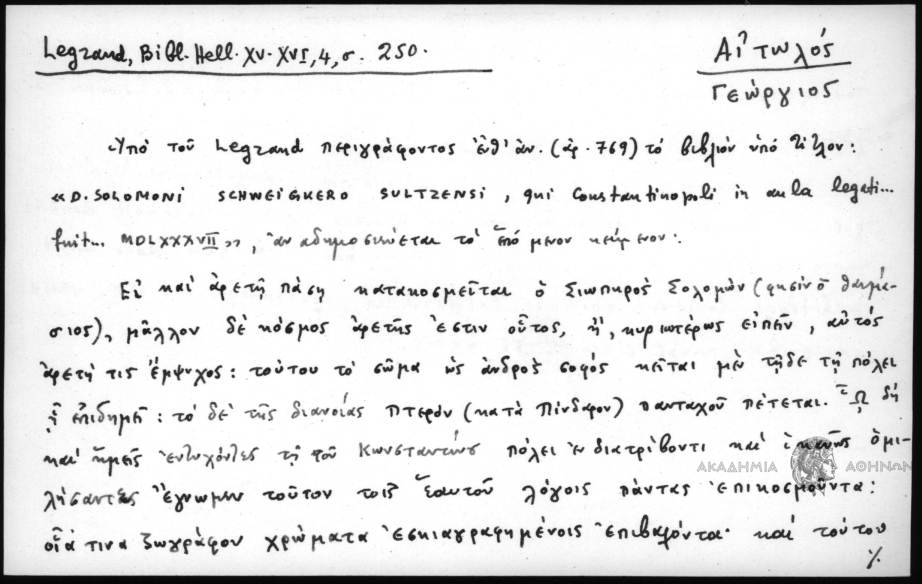 Legrand, Bibl. Hell. XV-XVI, 4, σ. 250.
Αἰτωλός
Γεώργιος
Ὑπό τοῦ Legrand περιγράφοντος ἐνθ' ἀν. (ἀρ. 769) τό βιβλίον ὑπό τίτλον:
«D. SOLOMONI SCHWEIGKERO SULTZENSI, qui Constantinopoli in aula legati...
fuit... MDLXXXVII», ἀναδημοσιεύεται τό ἑπόμενον κείμενον:
Εἰ καί ἀρετῇ πάσῃ κατακοσμεῖται ὁ Σιωπηρὸς Σολομών (φησίν ὁ θαυμά-
σιος), μᾶλλον δέ κόσμος ἀρετῆς ἐστιν οὗτος, ἤ, κυριωτέρως εἰπεῖν, αὐτός
ἀρετή τις ἔμψυχος: τούτου τό σῶμα ὡς ἀνδρὸς σοφός κεῖται μέν τῇδε τῇ πόλει
ᾗ ἐπιδημεῖ: τό δέ τῆς διανοίας πτερόν (κατά Πίνδαρον) πανταχοῦ πέτεται. Ὧ δή
καί ἡμεῖς ἐντυχόντες τῇ τοῦ Κωνσταντίνου πόλει ἐνδιατρίβοντι καί ἱκανῶς ὁμι-
λήσαντες ἔγνωμεν τοῦτον τοῖς ἑαυτοῦ λόγοις πάντας ἐπικοσμοῦντα:
οἷά τινα ζωγράφον χρώματα ἐσκιαγραφημένοις ἐπιβαλόντα· καί τούτου
%
ΑΚΑΔΗΜΙΑ ΑΘΗΝΩΝ